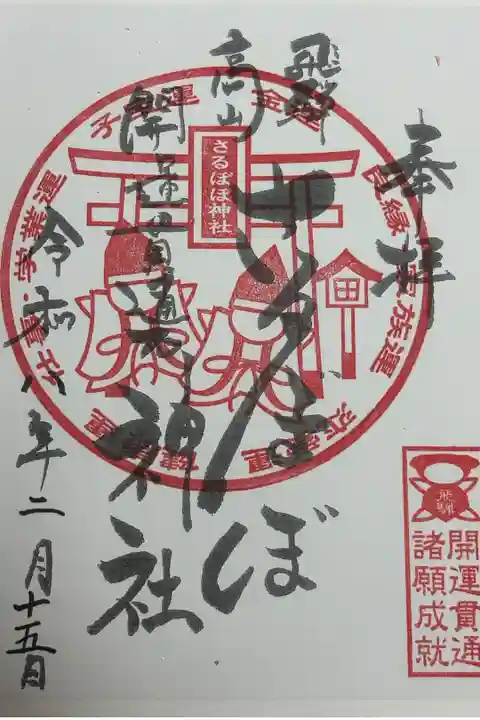 奉拝
飛騨
高山
さるぼぼ
開運貫通
神社
令和八年二月十五日
さるぼぼ神社
金運
良縁
家族運
子
開運貫通
諸願成就
飛騨